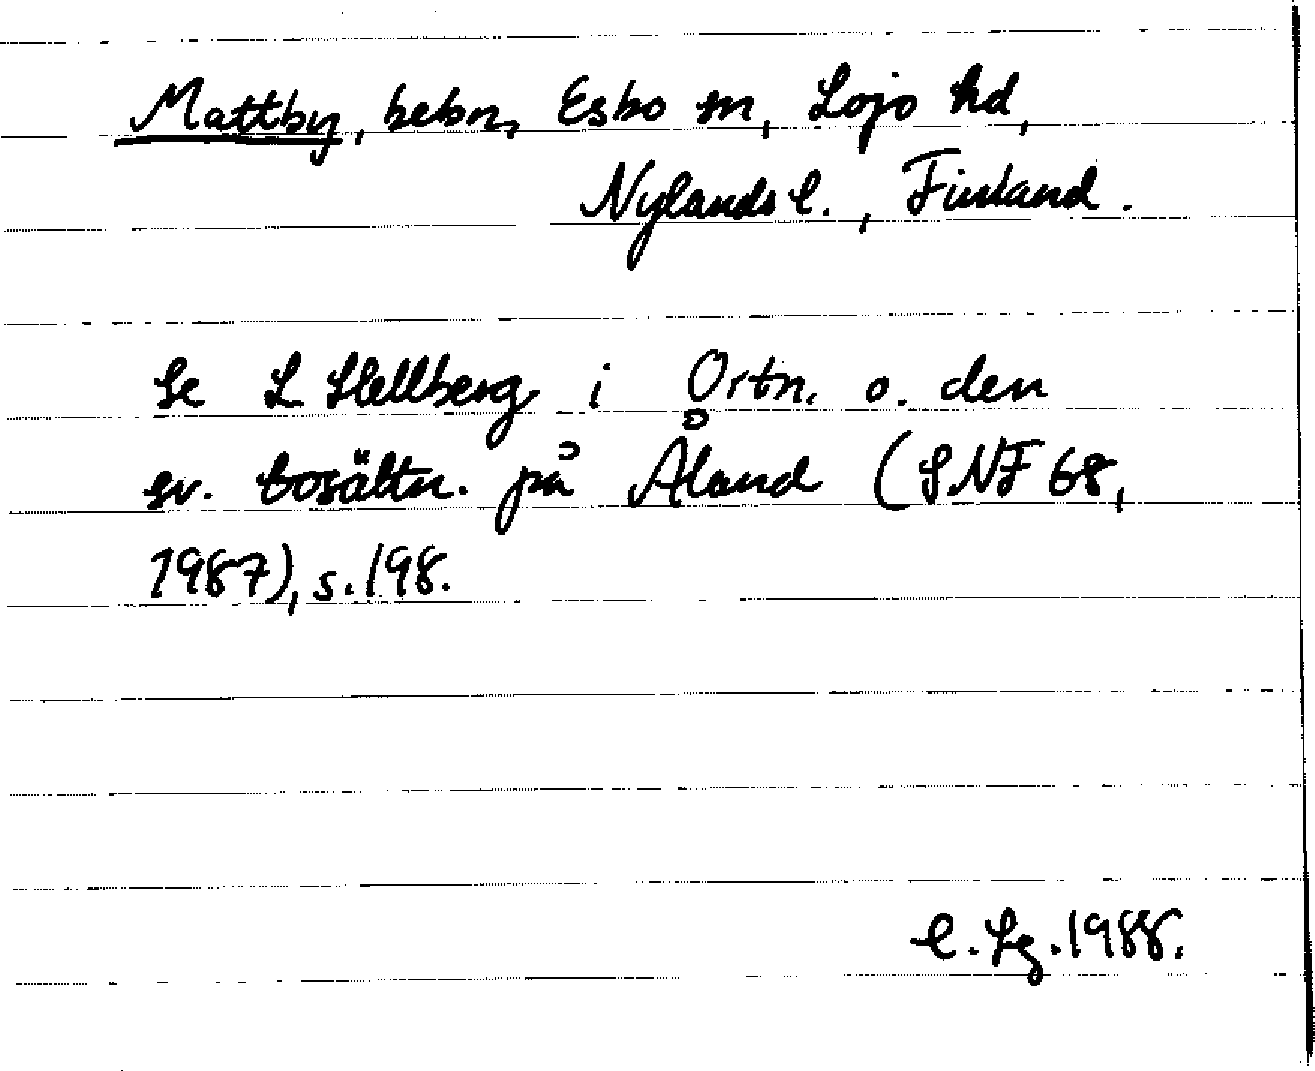 Mattby, bebn, Esbo sn, Lojo hd,
Nylands l., Finland.
Se L Hellberg i Ortn. o. den
sv. bosättn. på Åland (SNF 68,
1987), s. 198.
E. Lg. 1988.